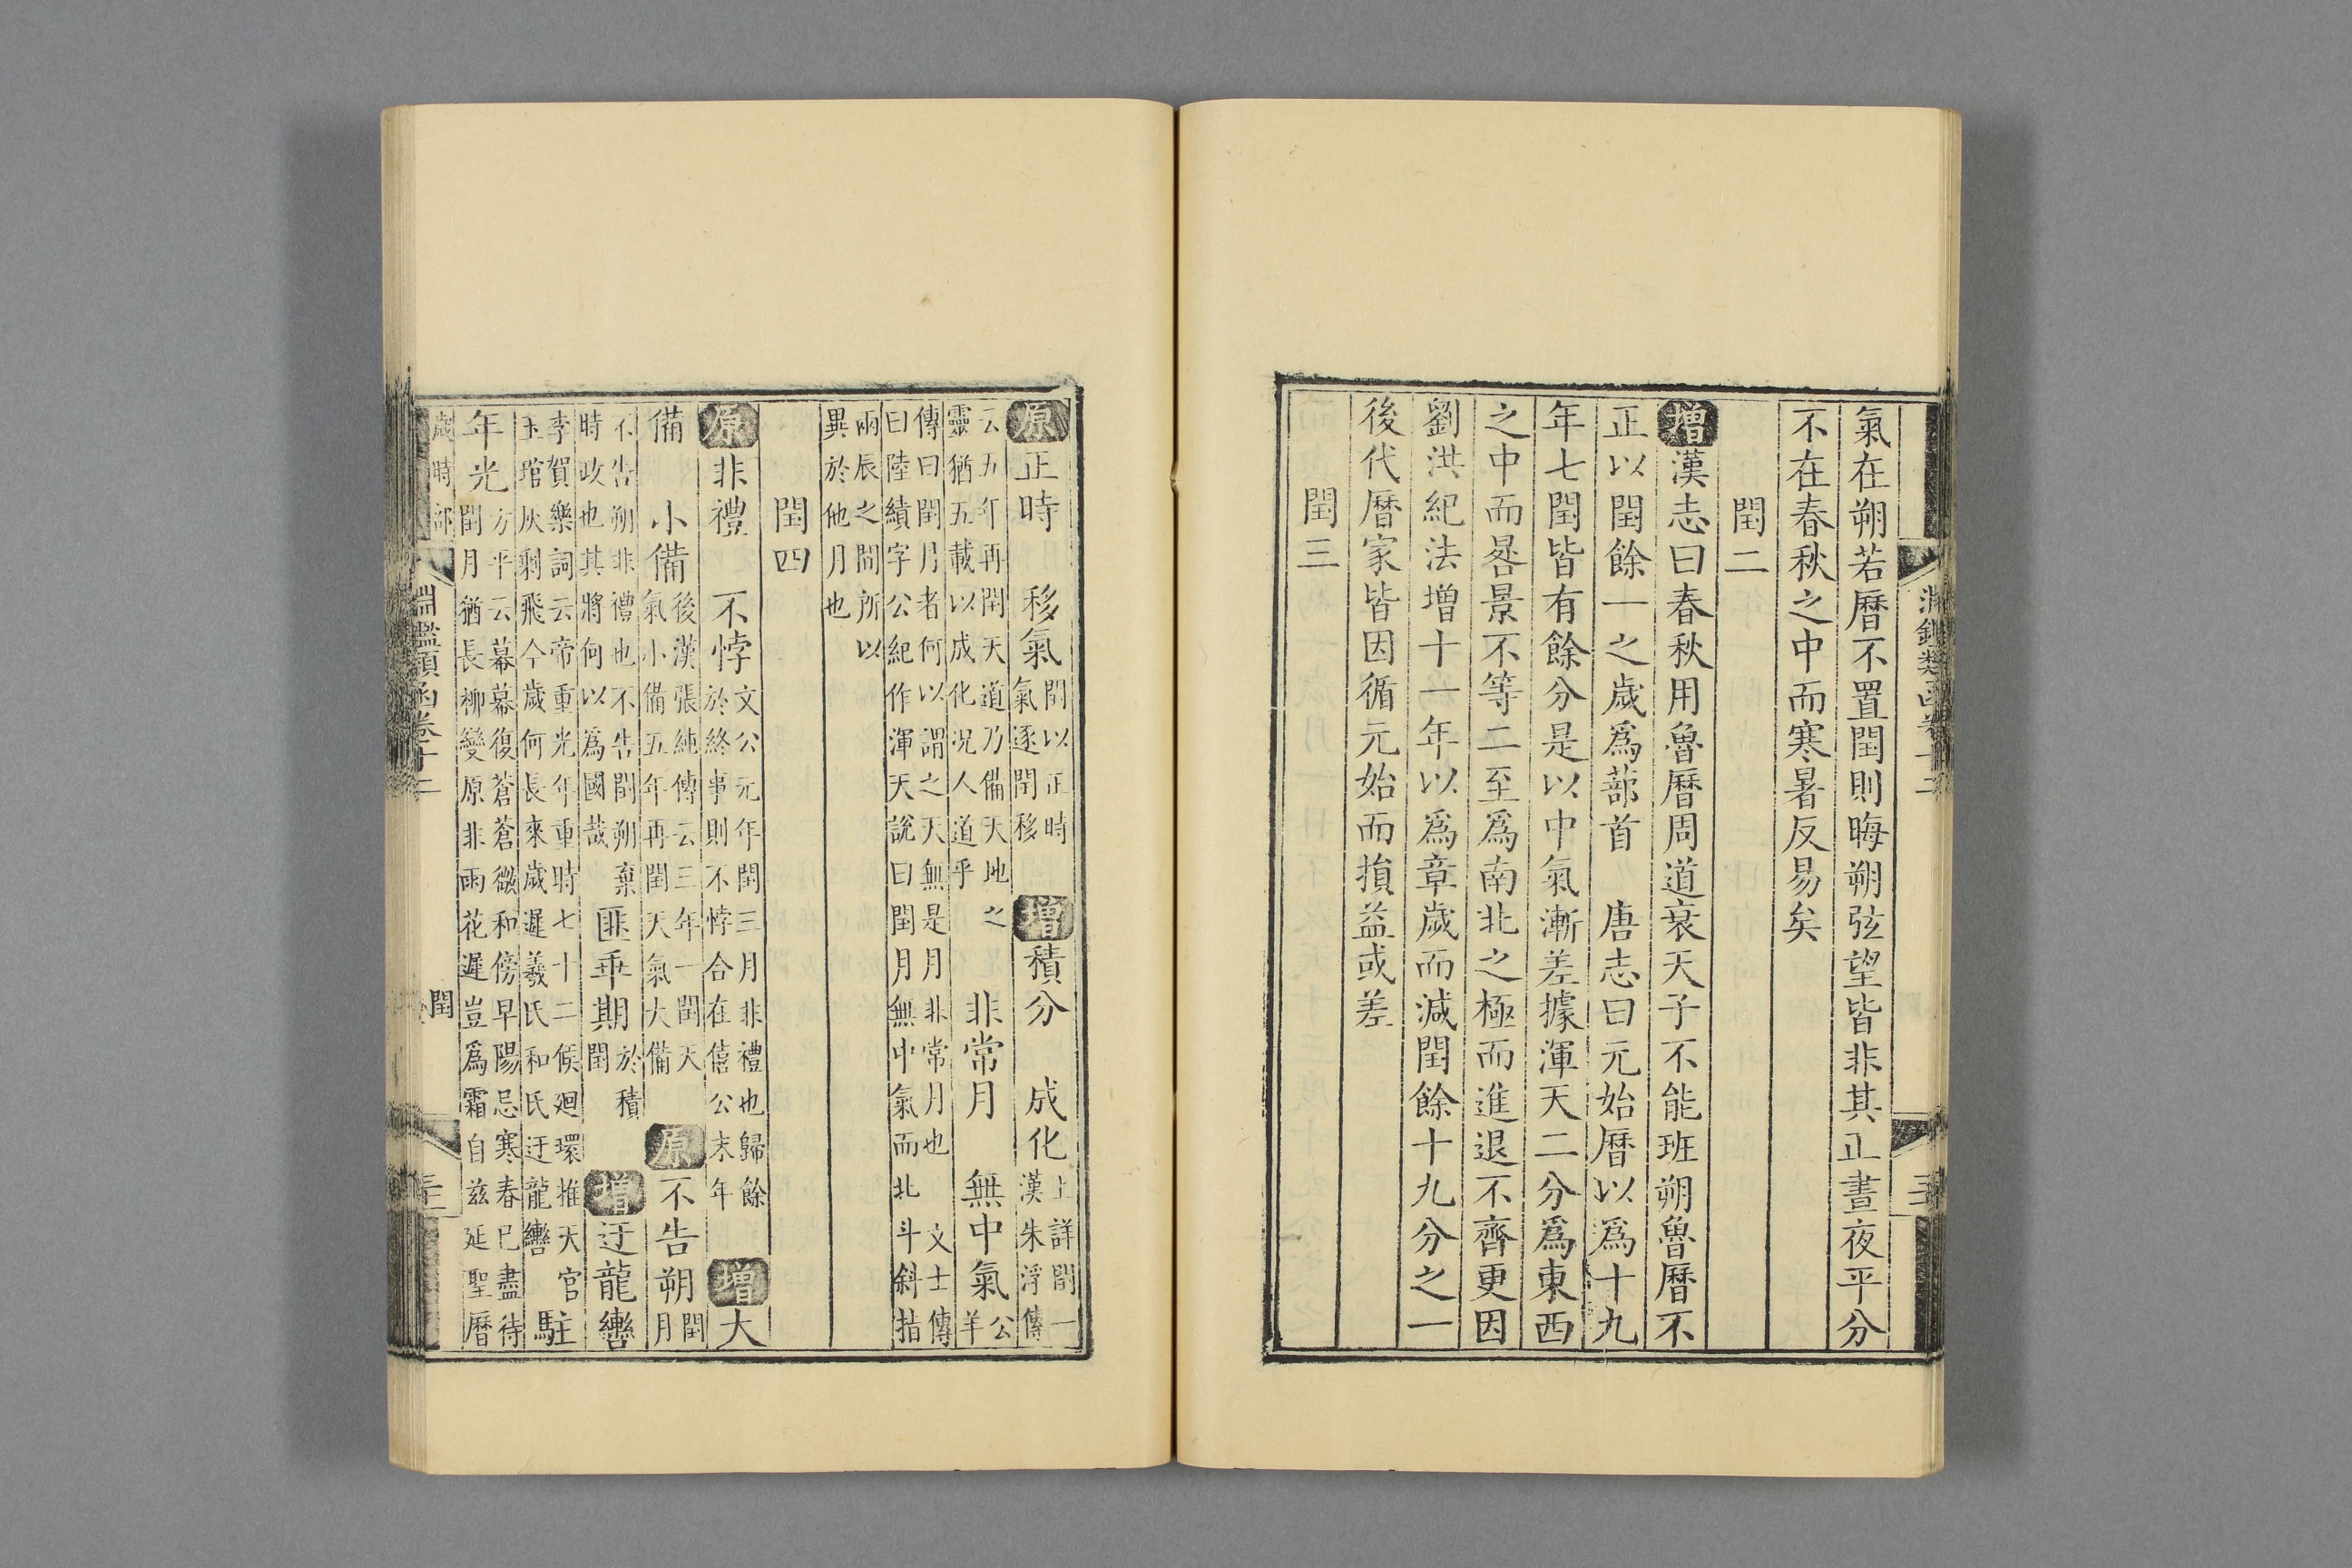 氣在朔若曆不置閏則晦朔弦望皆非其正晝夜平分
不在春秋之中而寒暑反易矣
閏二
增漢志曰春秋用魯曆周道衰天子不能班朔魯曆不
正以閏餘一之歲爲蔀首 唐志曰元始曆以爲十九
年七閏皆有餘分是以中氣漸差據渾天二分爲東西
之中而晷景不等二至爲南北之極而進退不齊更因
劉洪紀法增十一年以爲章歲而減閏餘十九分之一
後代曆家皆因循元始而損益或差
閏三
原正時 移氣閏以正時氣逐閏移 增積分 成化上詳閏一漢朱浮傳
云五年再閏天道乃備天地之靈猶五載以成化况人道乎 非常月 無中氣公羊
傳曰閏月者何以謂之天無是月非常月也 文士傳曰陸績字公紀作渾天說曰閏月無中氣而北斗斜指
兩辰之間所以異於他月也
閏四
原非禮 不悖文公元年閏三月非禮也歸餘於終事則不悖合在僖公末年 增大
備 小備後漢張純傳云三年一閏天氣小備五年再閏天氣大備 原不告朔閏月
不告朔非禮也不告閏朔棄時政也其將何以爲國哉 匪乖期於積閏 增迂龍轡
李賀樂詞云帝重光年重時七十二候廻環推天官玉琯灰剩飛今歲何長來歲遲羲氏和氏迂龍轡 駐
年光方平云幕幕復蒼蒼微和傍早陽忌寒春已盡待閏月猶長柳變原非雨花遲豈爲霜自兹延聖曆
歲時部
淵鑑類函卷十二
閏